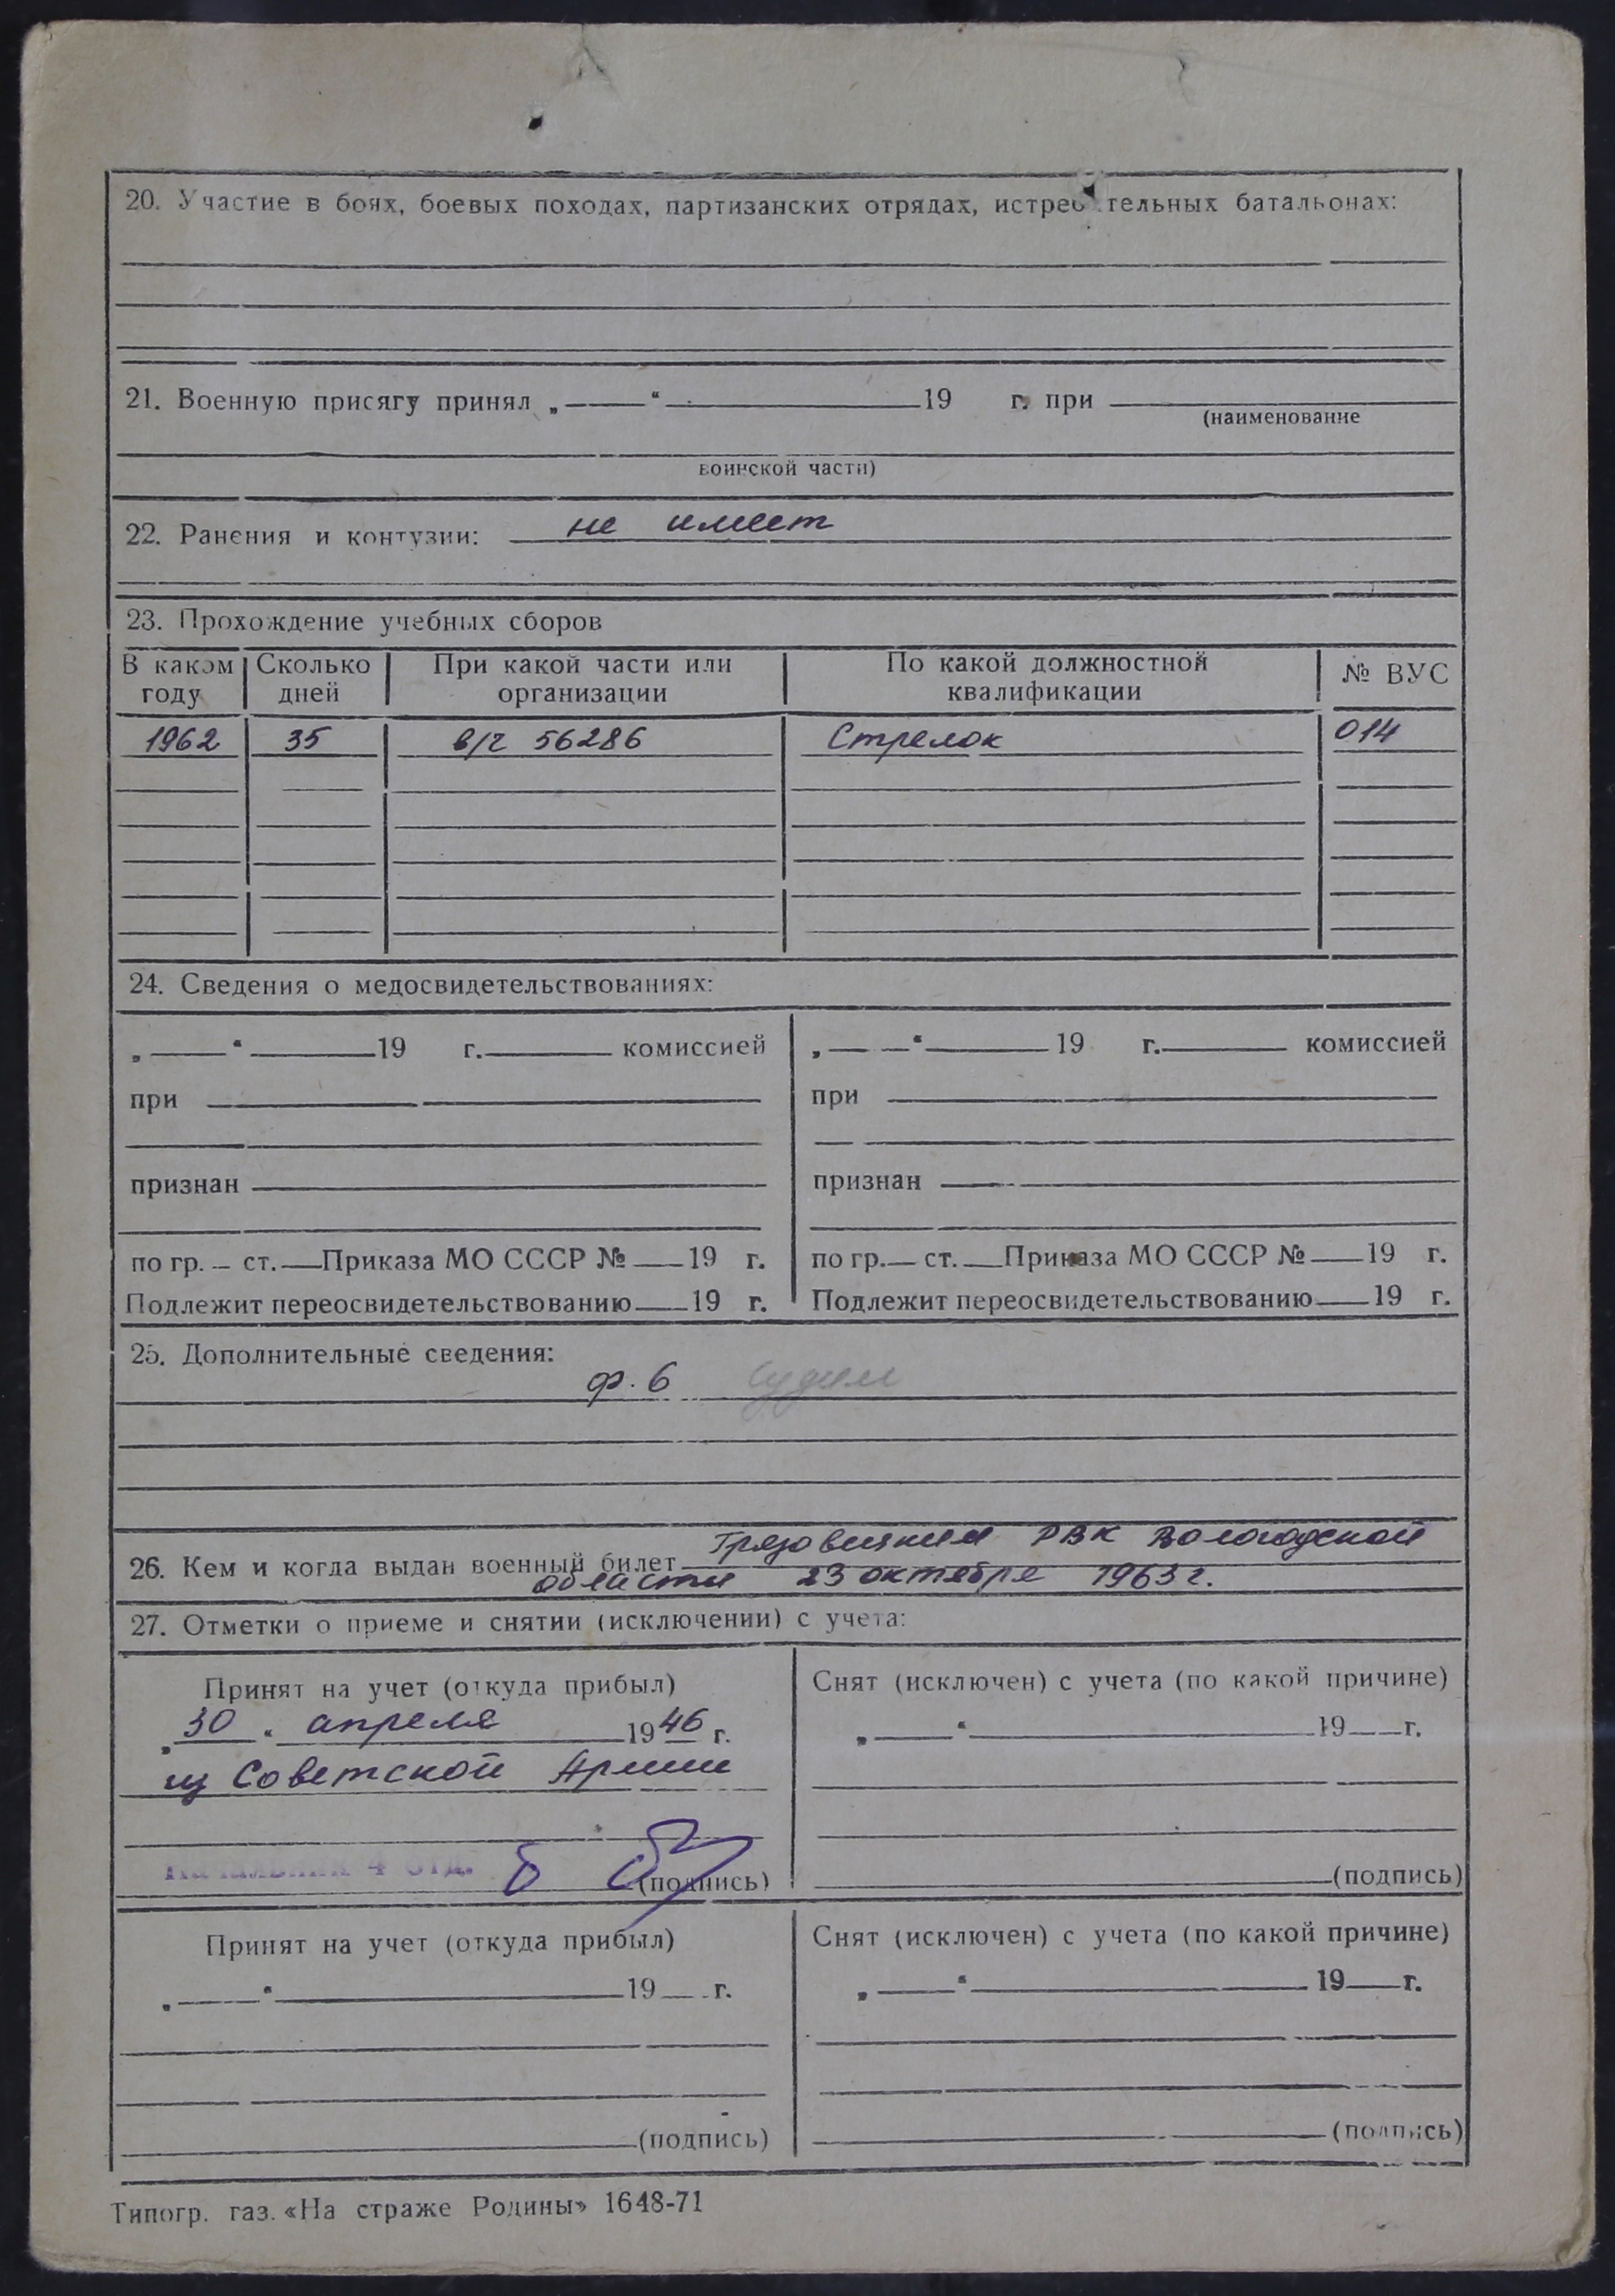 20. Участие в боях, боевых походах, партизанских отрядах, истребительных батальонах:
21. Военную присягу принял „ “ 19 г. при
(наименование
воинской части)
22. Ранения и контузии: не имеет
23. Прохождение учебных сборов
В каком году Сколько дней При какой части или организации По какой должностной квалификации № ВУС
1962 35 в/ч 56286 Стрелок 014
24. Сведения о медосвидетельствованиях:
„ “ 19 г. комиссией
при
признан
по гр. ст. Приказа МО СССР № 19 г.
Подлежит переосвидетельствованию 19 г.
„ “ 19 г. комиссией
при
признан
по гр. ст. Приказа МО СССР № 19 г.
Подлежит переосвидетельствованию 19 г.
25. Дополнительные сведения:
ф. 6 судим
26. Кем и когда выдан военный билет Грязовецким РВК Вологодской
области 23 октября 1963 г.
27. Отметки о приеме и снятии (исключении) с учета:
Принят на учет (откуда прибыл)
„30“ апреля 1946 г.
из Советской Армии
Начальник 4 отд. (подпись)
Снят (исключен) с учета (по какой причине)
„ “ 19 г.
(подпись)
Принят на учет (откуда прибыл)
„ “ 19 г.
(подпись)
Снят (исключен) с учета (по какой причине)
„ “ 19 г.
(подпись)
Типогр. газ. «На страже Родины» 1648-71